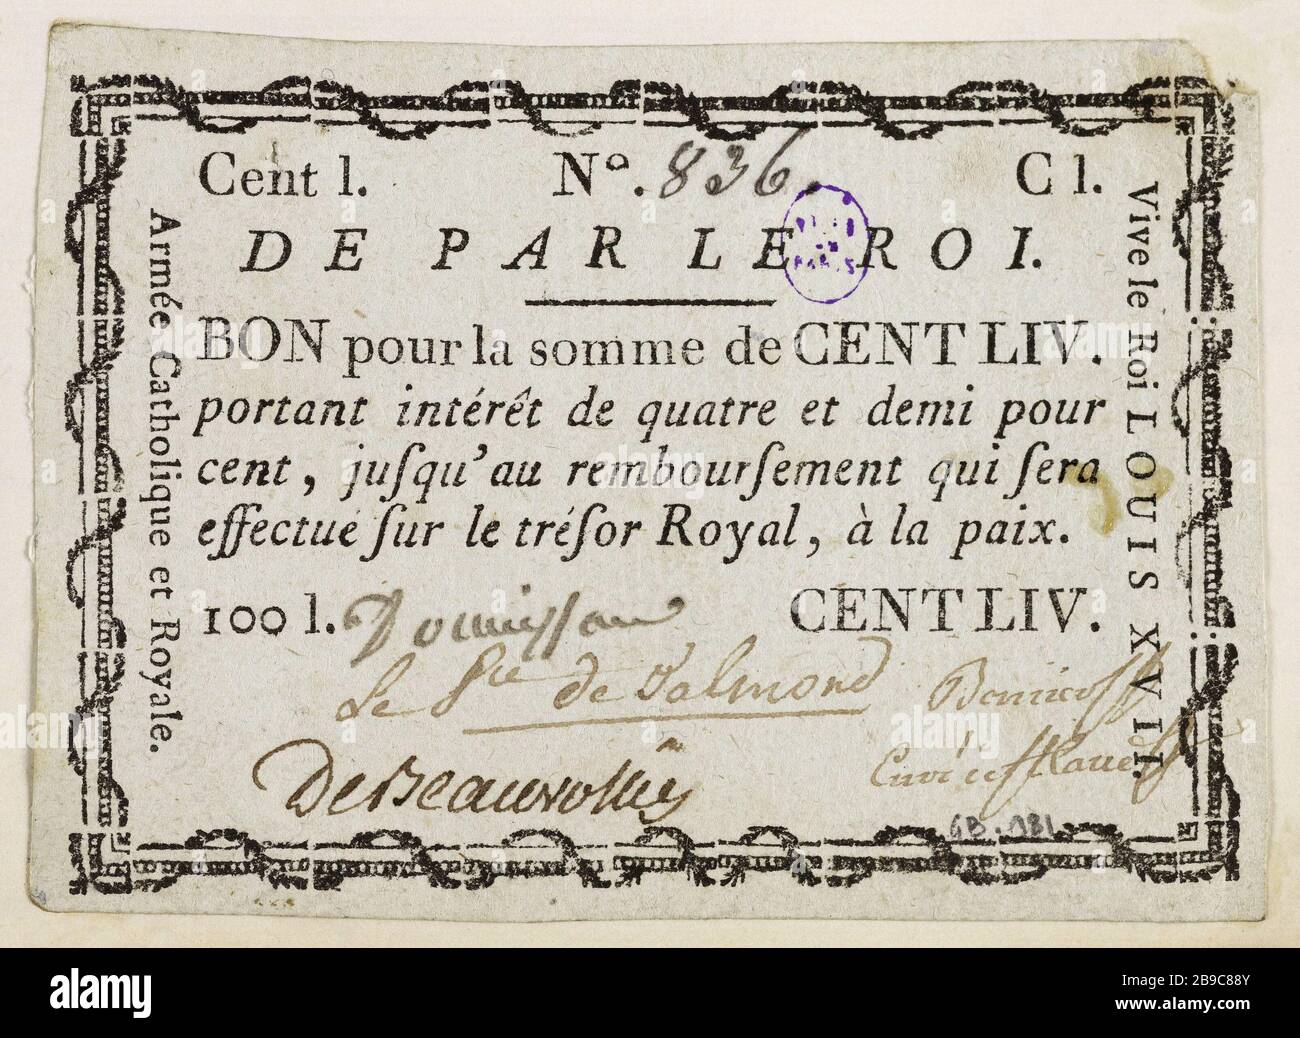 Cent l. Nº. 836. C l.
DE PAR LE ROI.
BON pour la somme de CENT LIV.
portant intérêt de quatre et demi pour
cent, juſqu'au rembourſement qui ſera
effectué ſur le tréſor Royal, à la paix.
100 l. CENT LIV.
Donnissan
Le Pce de Talmond
De Beauvollier
Armée Catholique et Royale.
Vive le Roi LOUIS XVII.
VILLE
DE
PARIS
alamy
Image ID: 2B9C88Y
www.alamy.com